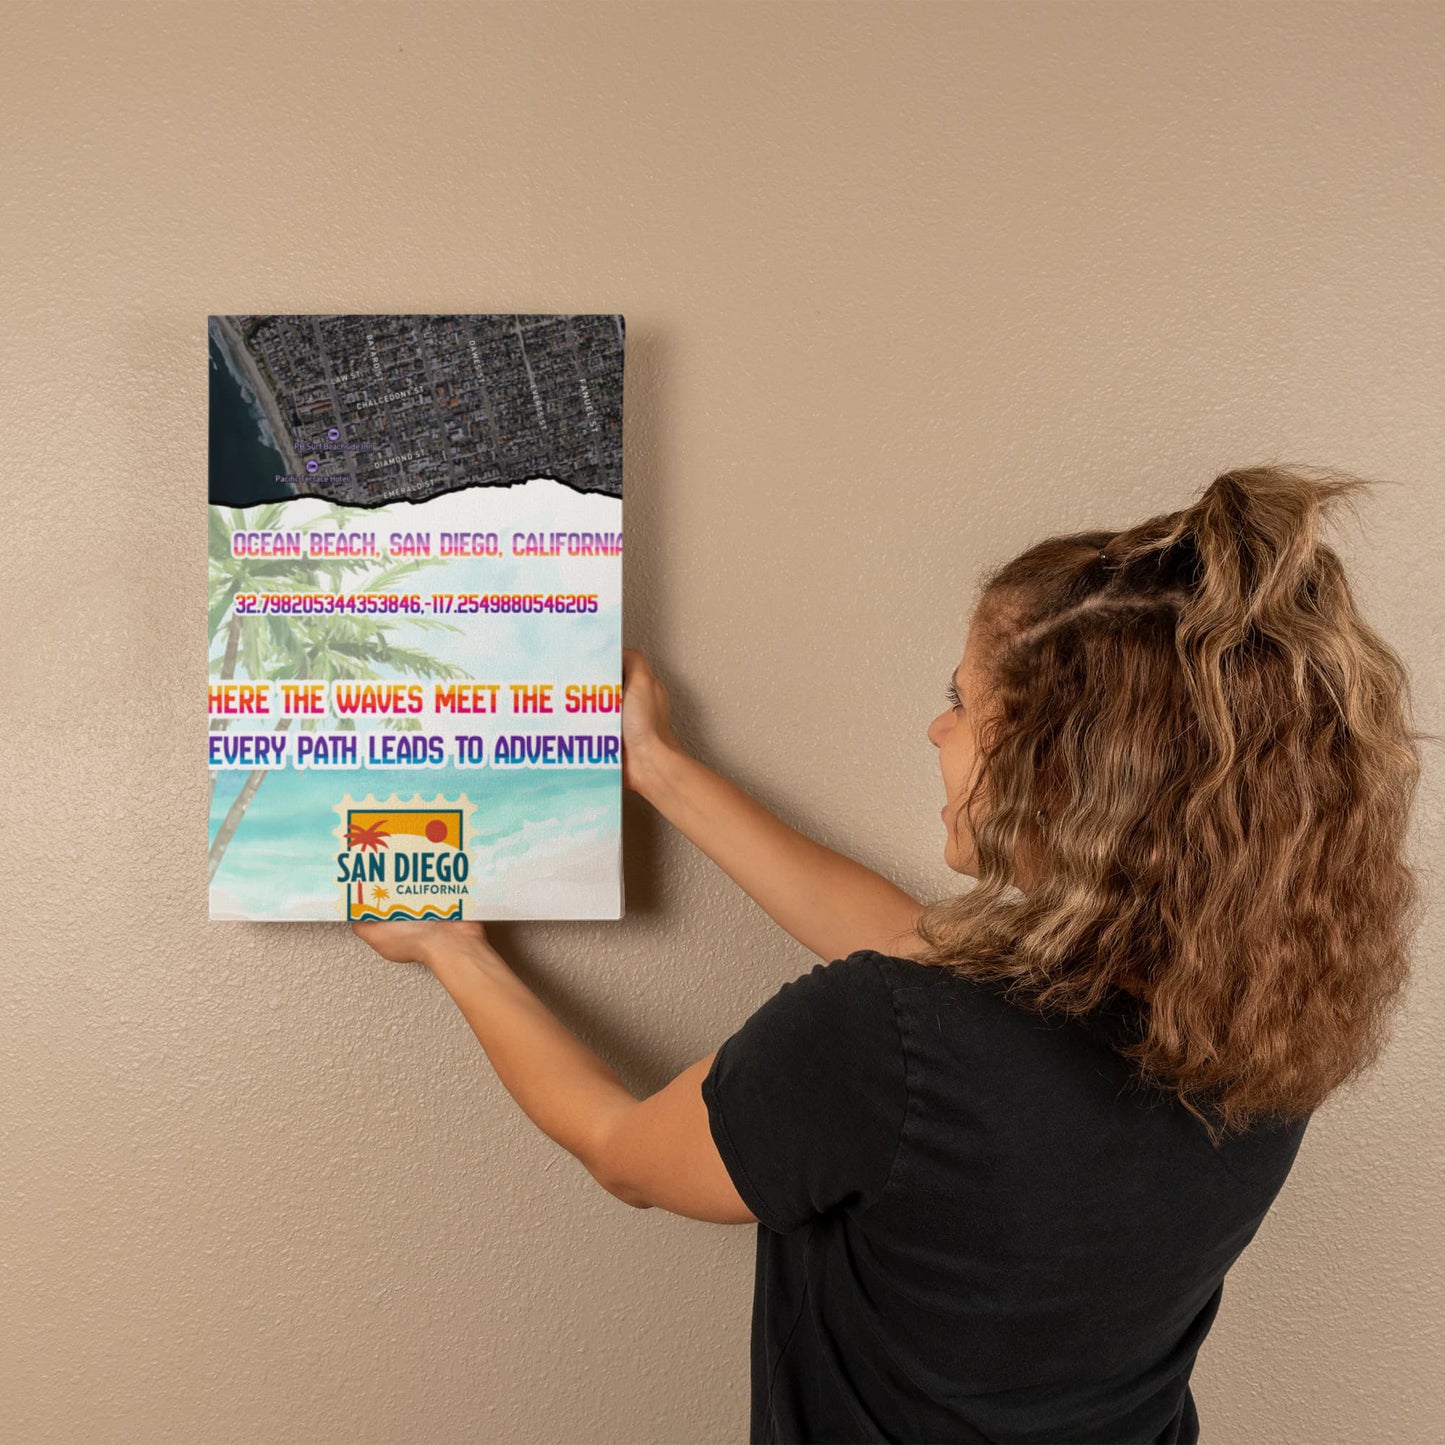 LAW ST
BAYARD ST
CHALCEDONY ST
FANUEL ST
PB Surf Beachside Inn
DIAMOND ST
Pacific Terrace Hotel
EMERALD ST
OCEAN BEACH, SAN DIEGO, CALIFORNIA
32.798205344353846,-117.2549880546205
HERE THE WAVES MEET THE SHOR
EVERY PATH LEADS TO ADVENTUR
SAN DIEGO
CALIFORNIA